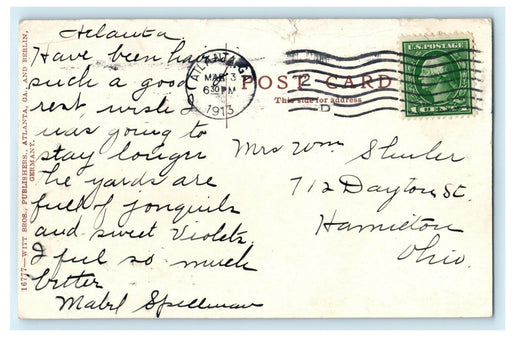 Atlanta
Have been having
such a good
rest, wish I
was going to
stay longer
the yards are
full of jonquils
and sweet Violets
I feel so much
better
Mabel Spellman
ATLANTA, GA.
MAR 3
6 30 PM
1913
2
D
U.S. POSTAGE
1 CENT 1
POST CARD
This side for address
Mrs Wm Shuler
712 Dayton St.
Hamilton
Ohio.
16777—WITT BROS., PUBLISHERS, ATLANTA, GA., AND BERLIN,
GERMANY.